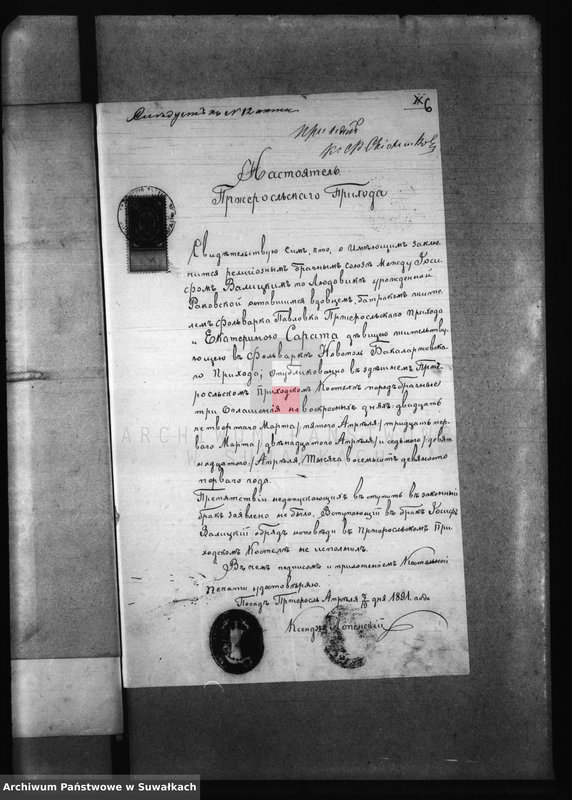 6
Настоятель
Пржеросльскаго Прихода
Свидѣтельствую симъ, что, о имѣющимъ заклю-
чится религіознымъ брачнымъ союзѣ между Іоси-
фомъ Валицкимъ по Людовикѣ урожденной
Раковской оставшимся вдовцемъ, батракомъ жите-
лемъ фольварка Павловка Пржеросльскаго прихода
и Екатериною Сарата дѣвицею жительству-
ющею въ фольваркѣ Новополь Бакаларжевска-
го Прихода; опубликовано въ здѣшнемъ Прже-
росльскомъ Приходскомъ Костелѣ предъбрачные
три оглашенія на воскресныхъ дняхъ: двадцать
четвертаго Марта /: пятаго Апрѣля /: тридцать пер-
ваго Марта /: двѣнадцатаго Апрѣля /: и седьмого /: девят
надцатого /: Апрѣля, Тысяча восемьсотъ девяносто
перваго года.
Препятствіи недопускающихъ вступить въ законный
бракъ заявлено не было. Вступающій въ бракъ Іосифъ
Валицкій обрядъ исповѣди въ Пржеросльскомъ При-
ходскомъ Костелѣ не исполнилъ.
Въ чемъ подписомъ и приложеніемъ Костельной
печати удостовѣряю.
Посадъ Пржеросль Апрѣля 7/19 дня 1891 года
Ксендзъ
ARCHIWUM
Archiwum Państwowe w Suwałkach